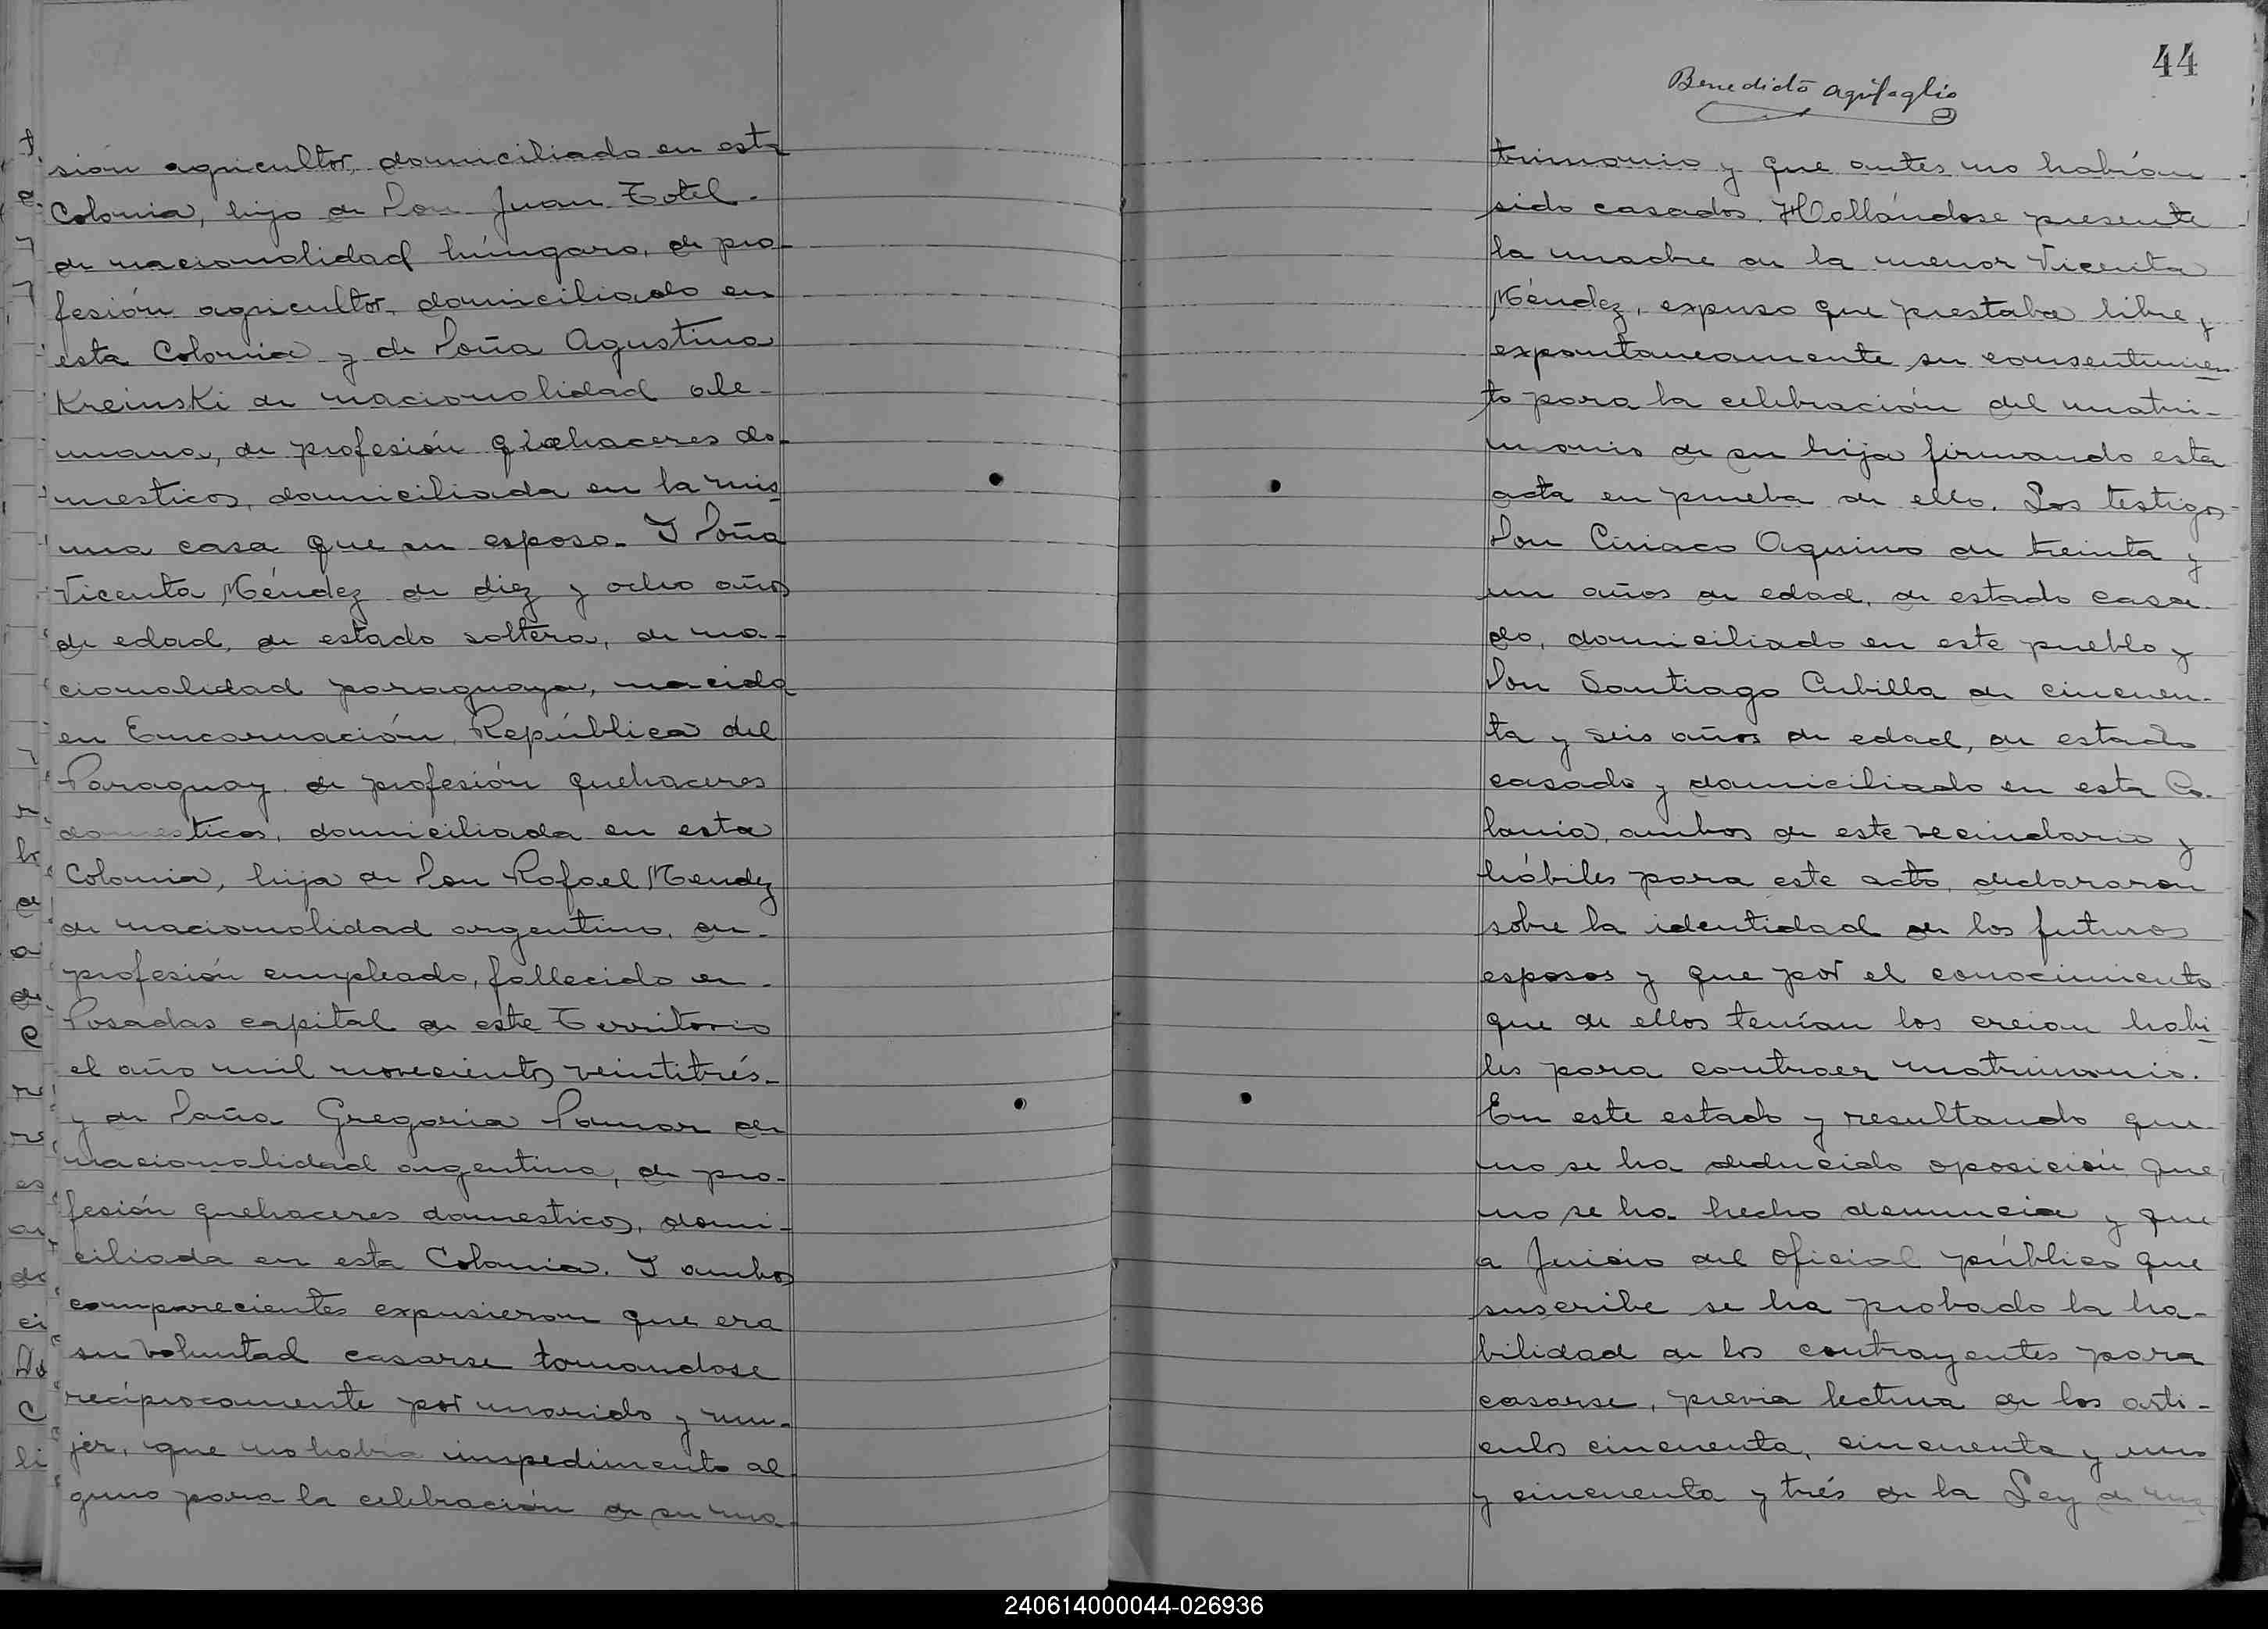 sión agricultor, domiciliado en esta
Colonia, hijo de Don Juan Totel-
de nacionalidad húngaro, de pro-
fesión agricultor, domiciliado en
esta Colonia y de Doña Agustina
Kreinski de nacionalidad ale-
mana, de profesión quehaceres do-
mesticos, domiciliada en la mis
ma casa que su esposo. Y Doña
Vicenta Méndez de diez y ocho años
de edad, de estado soltera, de na-
cionalidad paraguaya, nacida
en Encarnación, República del
Paraguay de profesión quehaceres
domesticos, domiciliada en esta
Colonia, hija de Don Rafael Mendez
de nacionalidad argentino, de-
profesión empleado, fallecido en-
Posadas capital de este Territorio
el año mil novecientos veintitrés-
y de Doña Gregoria
de
nacionalidad argentina, de pro-
fesión quehaceres domesticos, domi-
ciliada en esta Colonia. Y ambos
comparecientes expusieron que era
su voluntad casarse tomandose
recíprocamente por marido y mu-
jer, que no había impedimento al
guno para la celebración de su ma-
44
Benedicto
trimonio y que antes no habían
sido casados. Hallándose presente
la madre de la menor Vicenta
Méndez, expuso que prestaba libre y
expontaneamente su consentimien
to para la celebración del matri-
monio de su hija firmando esta
acta en prueba de ello. Los testigos
Don Ciriaco Aquino de treinta y
un años de edad, de estado casa-
do, domiciliado en este pueblo y
Don Santiago Cubilla de cincuen-
ta y seis años de edad, de estado
casado y domiciliado en esta Co-
lonia, ambos de este vecindario y
hábiles para este acto, declararon
sobre la identidad de los futuros
esposos y que por el conocimiento
que de ellos tenían los creian habi
les para contraer matrimonio.
En este estado y resultando que
no se ha deducido oposición que
no se ha hecho denuncia y que
a Juicio del Oficial público que
suscribe se ha probado la ha-
bilidad de los contrayentes para
casarse, previa lectura de los arti-
culos cincuenta, cincuenta y uno
y cincuenta y trés de la Ley de ma
240614000044-026936